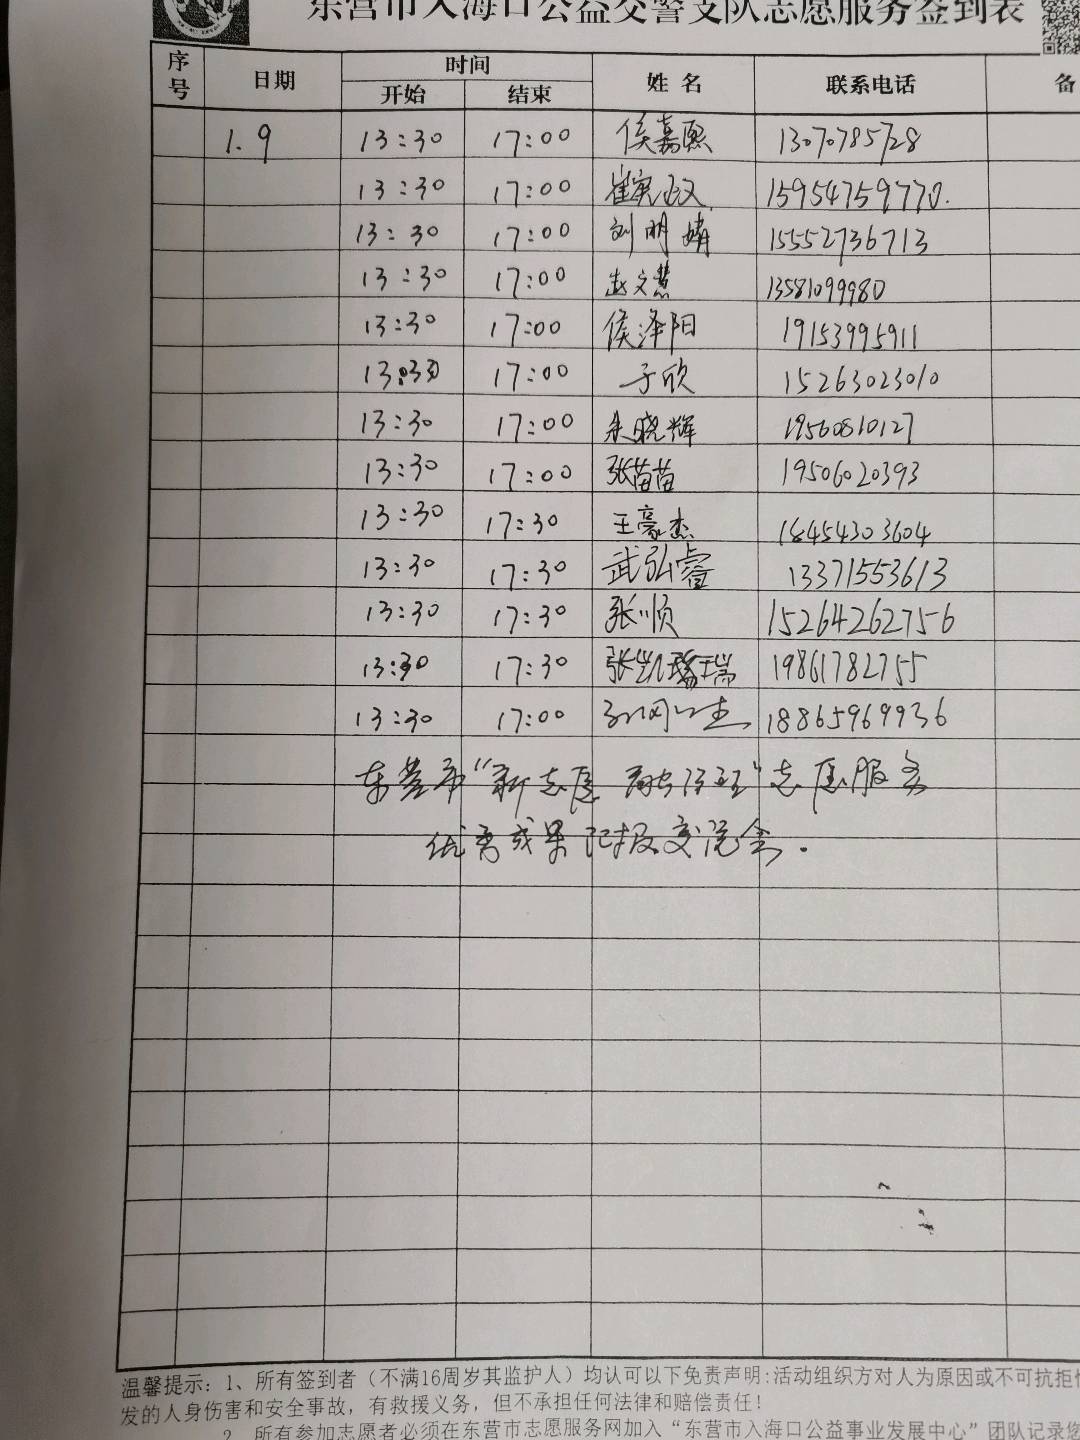 东营市入海口公益交警支队志愿服务签到表
序号 日期 时间 姓名 联系电话 备
开始 结束
1.9 13:30 17:00 侯嘉熙 13070785728
13:30 17:00 15954759770.
13:30 17:00 刘明婧 15552736713
13:30 17:00 赵文慧 13581099980
13:30 17:00 侯泽阳 19153995911
13:30 17:00 于欣 15263023010
13:30 17:00 朱晓辉 19560810127
13:30 17:00 张苗苗 19506020393
13:30 17:30 王豪杰 18454303604
13:30 17:30 武弘睿 13371553613
13:30 17:30 张顺 15264262756
13:30 17:30 张凯瑞 19861782755
13:30 17:00 18865969936
东营市“新志愿 ”志愿服务
优秀成果汇报交流会.
温馨提示：1、所有签到者（不满16周岁其监护人）均认可以下免责声明:活动组织方对人为原因或不可抗拒
发的人身伤害和安全事故，有救援义务，但不承担任何法律和赔偿责任！
2、所有参加志愿者必须在东营市志愿服务网加入“东营市入海口公益事业发展中心”团队记录